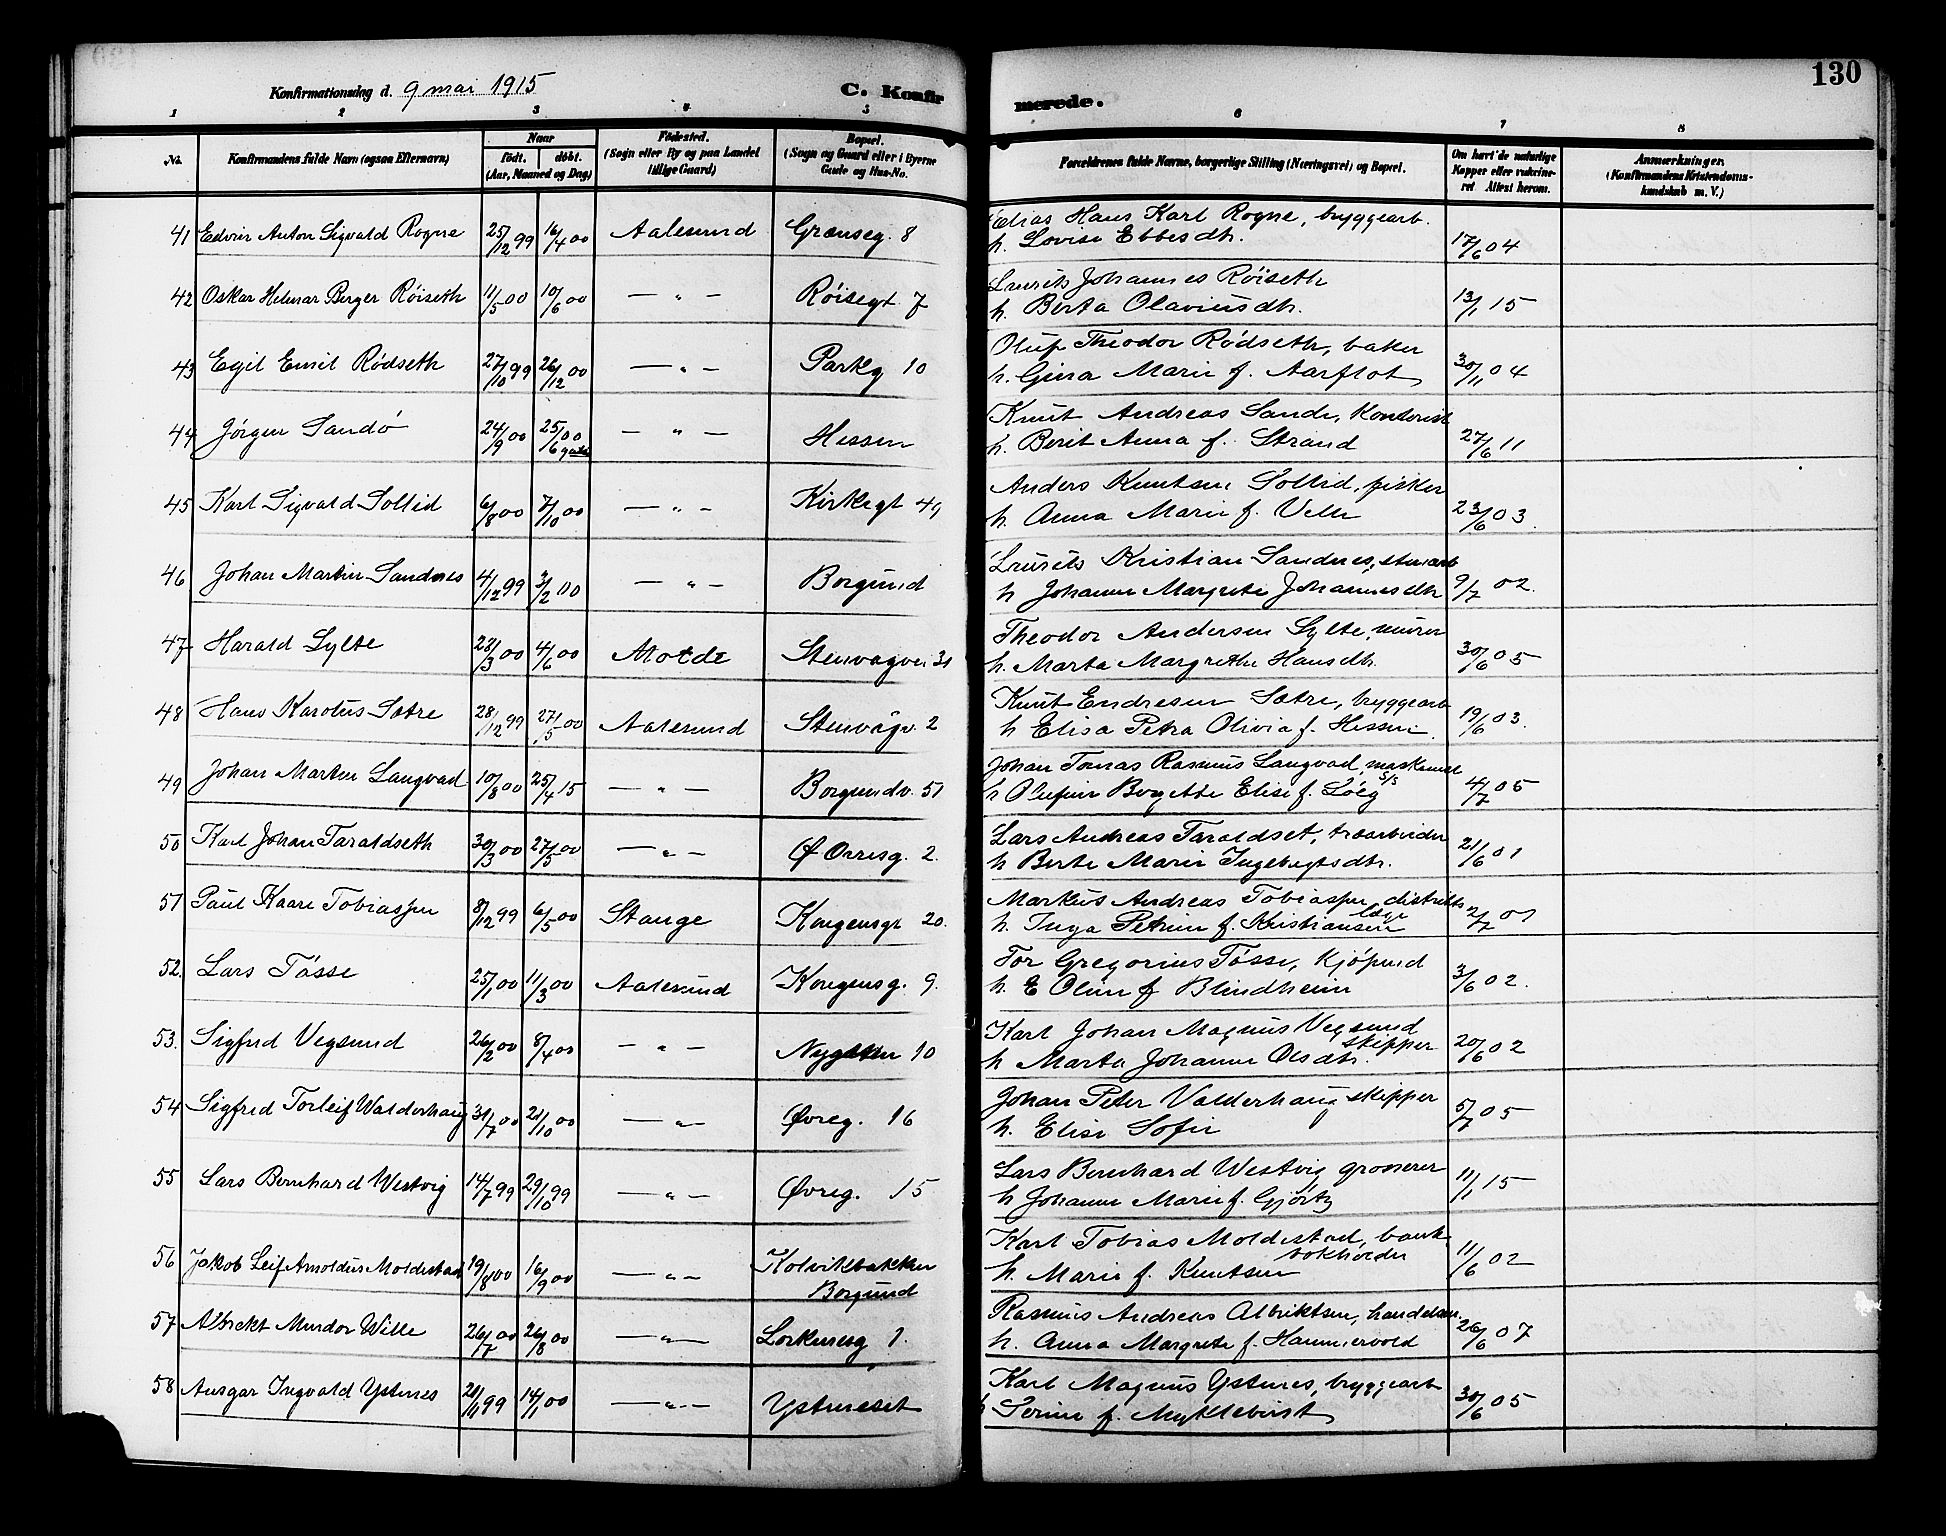 130
Konfirmationsdag d. 9 mai 1915
C. Konfirmerede.
1 2 3 4 5 6 7 8
No. Konfirmandens fulde Navn (ogsaa Efternavn) Naar født. døbt. (Aar, Maaned og Dag) Fødested. (Sogn eller By og paa Landet tillige Gaard) Bopæl. (Sogn og Gaard eller i Byerne Gade og Hus-No. Forældrenes fulde Navne, borgerlige Stilling (Næringsvei) og Bopæl. Om havt de naturlige Kopper eller vaksineret Attest herom. Anmærkninger. (Konfirmandens Kristendomskundskab m. V.)
41 Edvin Anton Sigvald Rogne 25/12 99 16/4 00 Aalesund Grænseg. 8 Elias Hans Karl Rogne, bryggearb. 17/6 04
h. Lovise Ebbesdtr.
42 Oskar Helmar Berger Röiseth 11/5 00 10/6 00 — " — Röisegt 7 Laurits Johannes Röiseth 13/1 15
h. Berta Olaviusdtr.
43 Egil Emil Rödseth 27/10 99 26/12 00 — " — Parkg 10 Oluf Theodor Rödseth, baker 30/11 04
h. Gina Marie f. Aarflot
44 Jörgen Sandö 24/9 00 25/6 00 — " — Hessen Knut Andreas Sande, Kontorist 27/6 11
h. Berit Anna f. Strand
45 Karl Sigvald Soltid 6/8 00 7/10 00 — " — Kirkegt 49 Anders Knutsen Soltid, fisker 23/6 03.
h. Anna Marie f. Velle
46 Johan Martin Sandnes 4/12 99 3/2 00 — " — Borgund Laurits Kristian Sandnes, stenarb 9/7 02.
h Johanne Margrete Johannesdtr
47 Harald Sylte 28/3 00 4/6 00 Molde Stenvagvei 31 Theodor Andersen Sylte, murer 30/6 05
h. Marta Margrethe Hansdtr.
48 Hans Karolus Sætre 28/12 99 27/5 00 Aalesund Stenvågv. 2 Knut Endresen Sætre, bryggearb 19/6 03.
h Elisa Petra Olivia f. Hessen.
49 Johan Martin Langvad 10/8 00 25/4 15 — " — Borgundv. 51 Johan Tomas Rasmus Langvad, maskinist s/s 4/7 05
h Olufine Bergette Elise f. Löeg
50 Karl Johan Taraldseth 30/3 00 27/5 00 — " — Ø Orresg. 2. Lars Andreas Taraldset, træarbeider 21/6 01
h Berte Marie Ingebrigtsdtr.
51 Paul Kaare Tobiassen 8/12 99 6/5 00 Stange Kongensgt 20. Markus Andreas Tobiassen, distriktslæge 2/7 01
h. Inga Petrine f. Kristiansen
52. Lars Tösse 25/1 00 11/3 00 Aalesund Kongensg. 9. Tor Gregorius Tösse, kjöpmd 3/6 02.
h. E Oline f Blindheim
53. Sigfred Vegsund 26/2 00 8/4 00 — " — Nygaten 10 Karl Johan Magnus Vegsund skipper 20/6 02
h Marta Johanne Olsdtr.
54 Sigfred Torleif Walderhaug 31/7 00 21/10 00 — " — Øvreg. 16 Johan Peter Valderhaug skipper 5/7 05
h. Elise Sofie
55 Lars Bernhard Westvig 14/7 99 29/10 99 — " — Øvreg. 15 Lars Bernhard Westvig grosserer 11/1 15
h Johanne Marie f. Gjörtz
56 Jakob Leif Arnoldus Moldestad 19/8 00 16/9 00 — " — Kolvikbakken Borgund Karl Tobias Moldestad, bank bokholder 11/6 02
h. Marie f. Knutsen
57 Albrekt Mindor Wille 26/7 00 26/8 00 — " — Lorkenesg 1. Rasmus Andreas Albriktsen, handelsm 26/6 07
h. Anna Margrete f. Hammervold
58 Ansgar Ingvald Ystenes 21/11 99 14/1 00 — " — Ysteneset Karl Magnus Ystenes, bryggearb 30/6 05
h Serine f. Myklebust